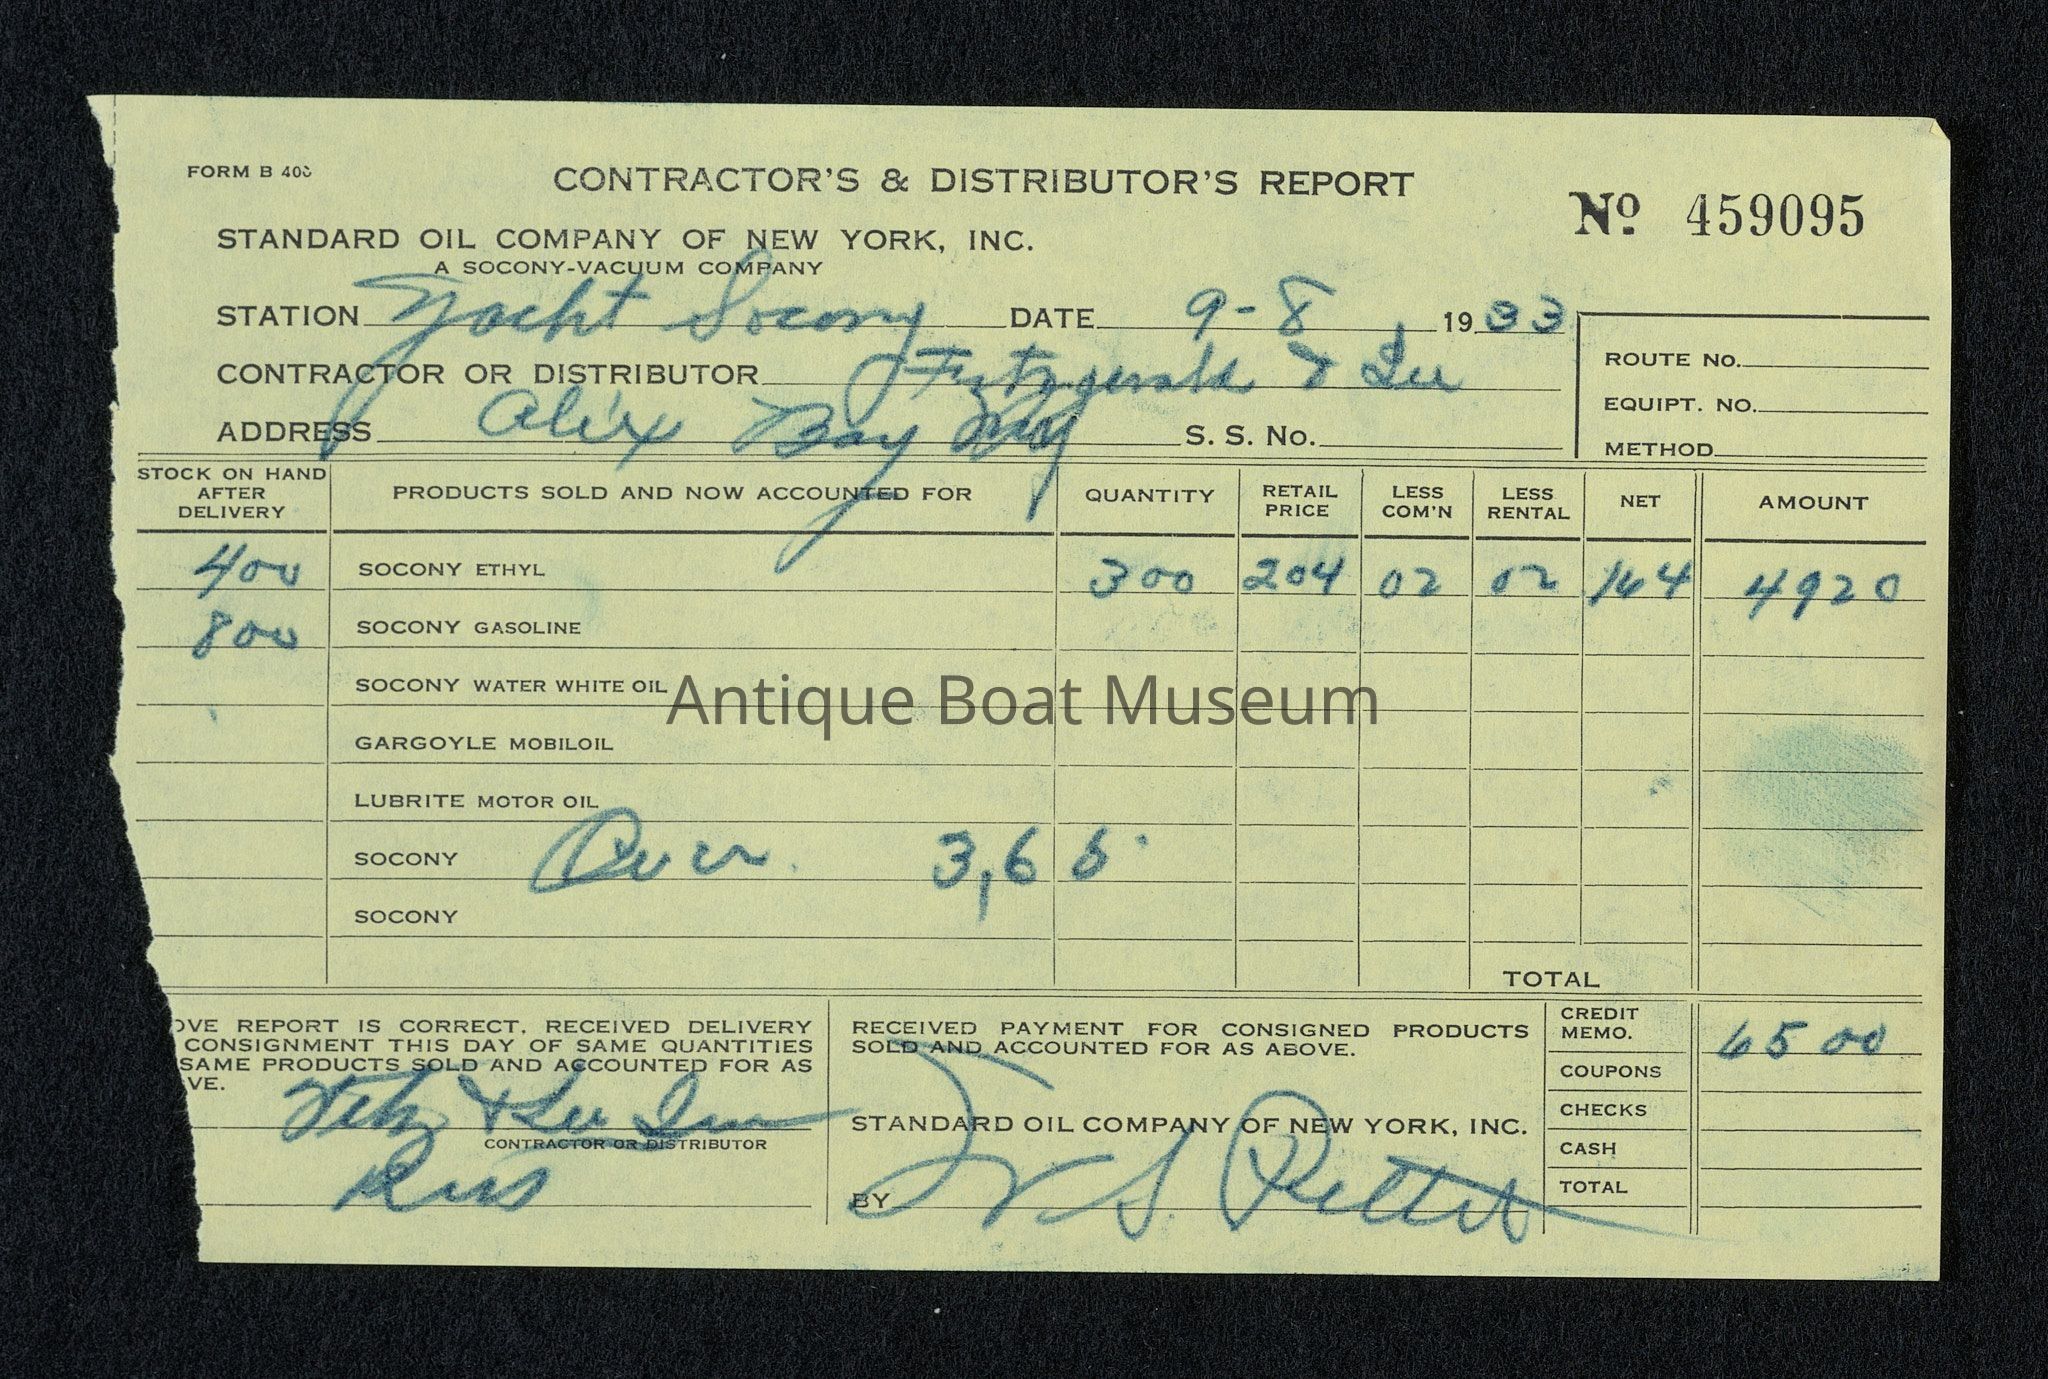 FORM B 403
CONTRACTOR'S & DISTRIBUTOR'S REPORT
No 459095
STANDARD OIL COMPANY OF NEW YORK, INC.
A SOCONY-VACUUM COMPANY
STATION Yacht Socony DATE 9-8 1933
CONTRACTOR OR DISTRIBUTOR Fitzgerald & Lee
ADDRESS Alex Bay NY S. S. No.
ROUTE No.
EQUIPT. NO.
METHOD
STOCK ON HAND AFTER DELIVERY PRODUCTS SOLD AND NOW ACCOUNTED FOR QUANTITY RETAIL PRICE LESS COM'N LESS RENTAL NET AMOUNT
400 SOCONY ETHYL 300 204 02 02 164 4920
800 SOCONY GASOLINE
SOCONY WATER WHITE OIL
Antique Boat Museum
GARGOYLE MOBILOIL
LUBRITE MOTOR OIL
SOCONY Over. 3,65
SOCONY
TOTAL
OVE REPORT IS CORRECT. RECEIVED DELIVERY
CONSIGNMENT THIS DAY OF SAME QUANTITIES
SAME PRODUCTS SOLD AND ACCOUNTED FOR AS
VE.
Fitz & Lee
CONTRACTOR OR DISTRIBUTOR
Russ
RECEIVED PAYMENT FOR CONSIGNED PRODUCTS
SOLD AND ACCOUNTED FOR AS ABOVE.
STANDARD OIL COMPANY OF NEW YORK, INC.
BY S. Pettit
CREDIT MEMO. 65 00
COUPONS
CHECKS
CASH
TOTAL